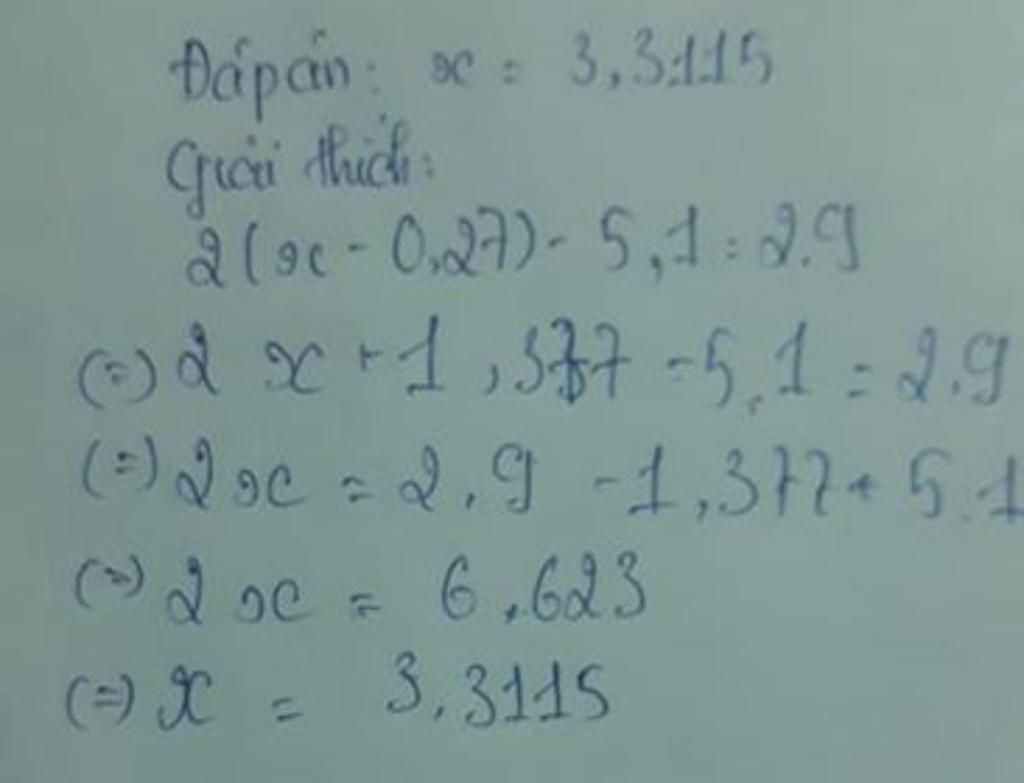 Đáp án: x = 3,3115
Giải thích:
2(x - 0,27) - 5,1 = 2.9
(=) 2 x + 1,377 - 5,1 = 2.9
(=) 2x = 2.9 - 1,377 + 5.1
(=) 2x = 6,623
(=) x = 3,3115